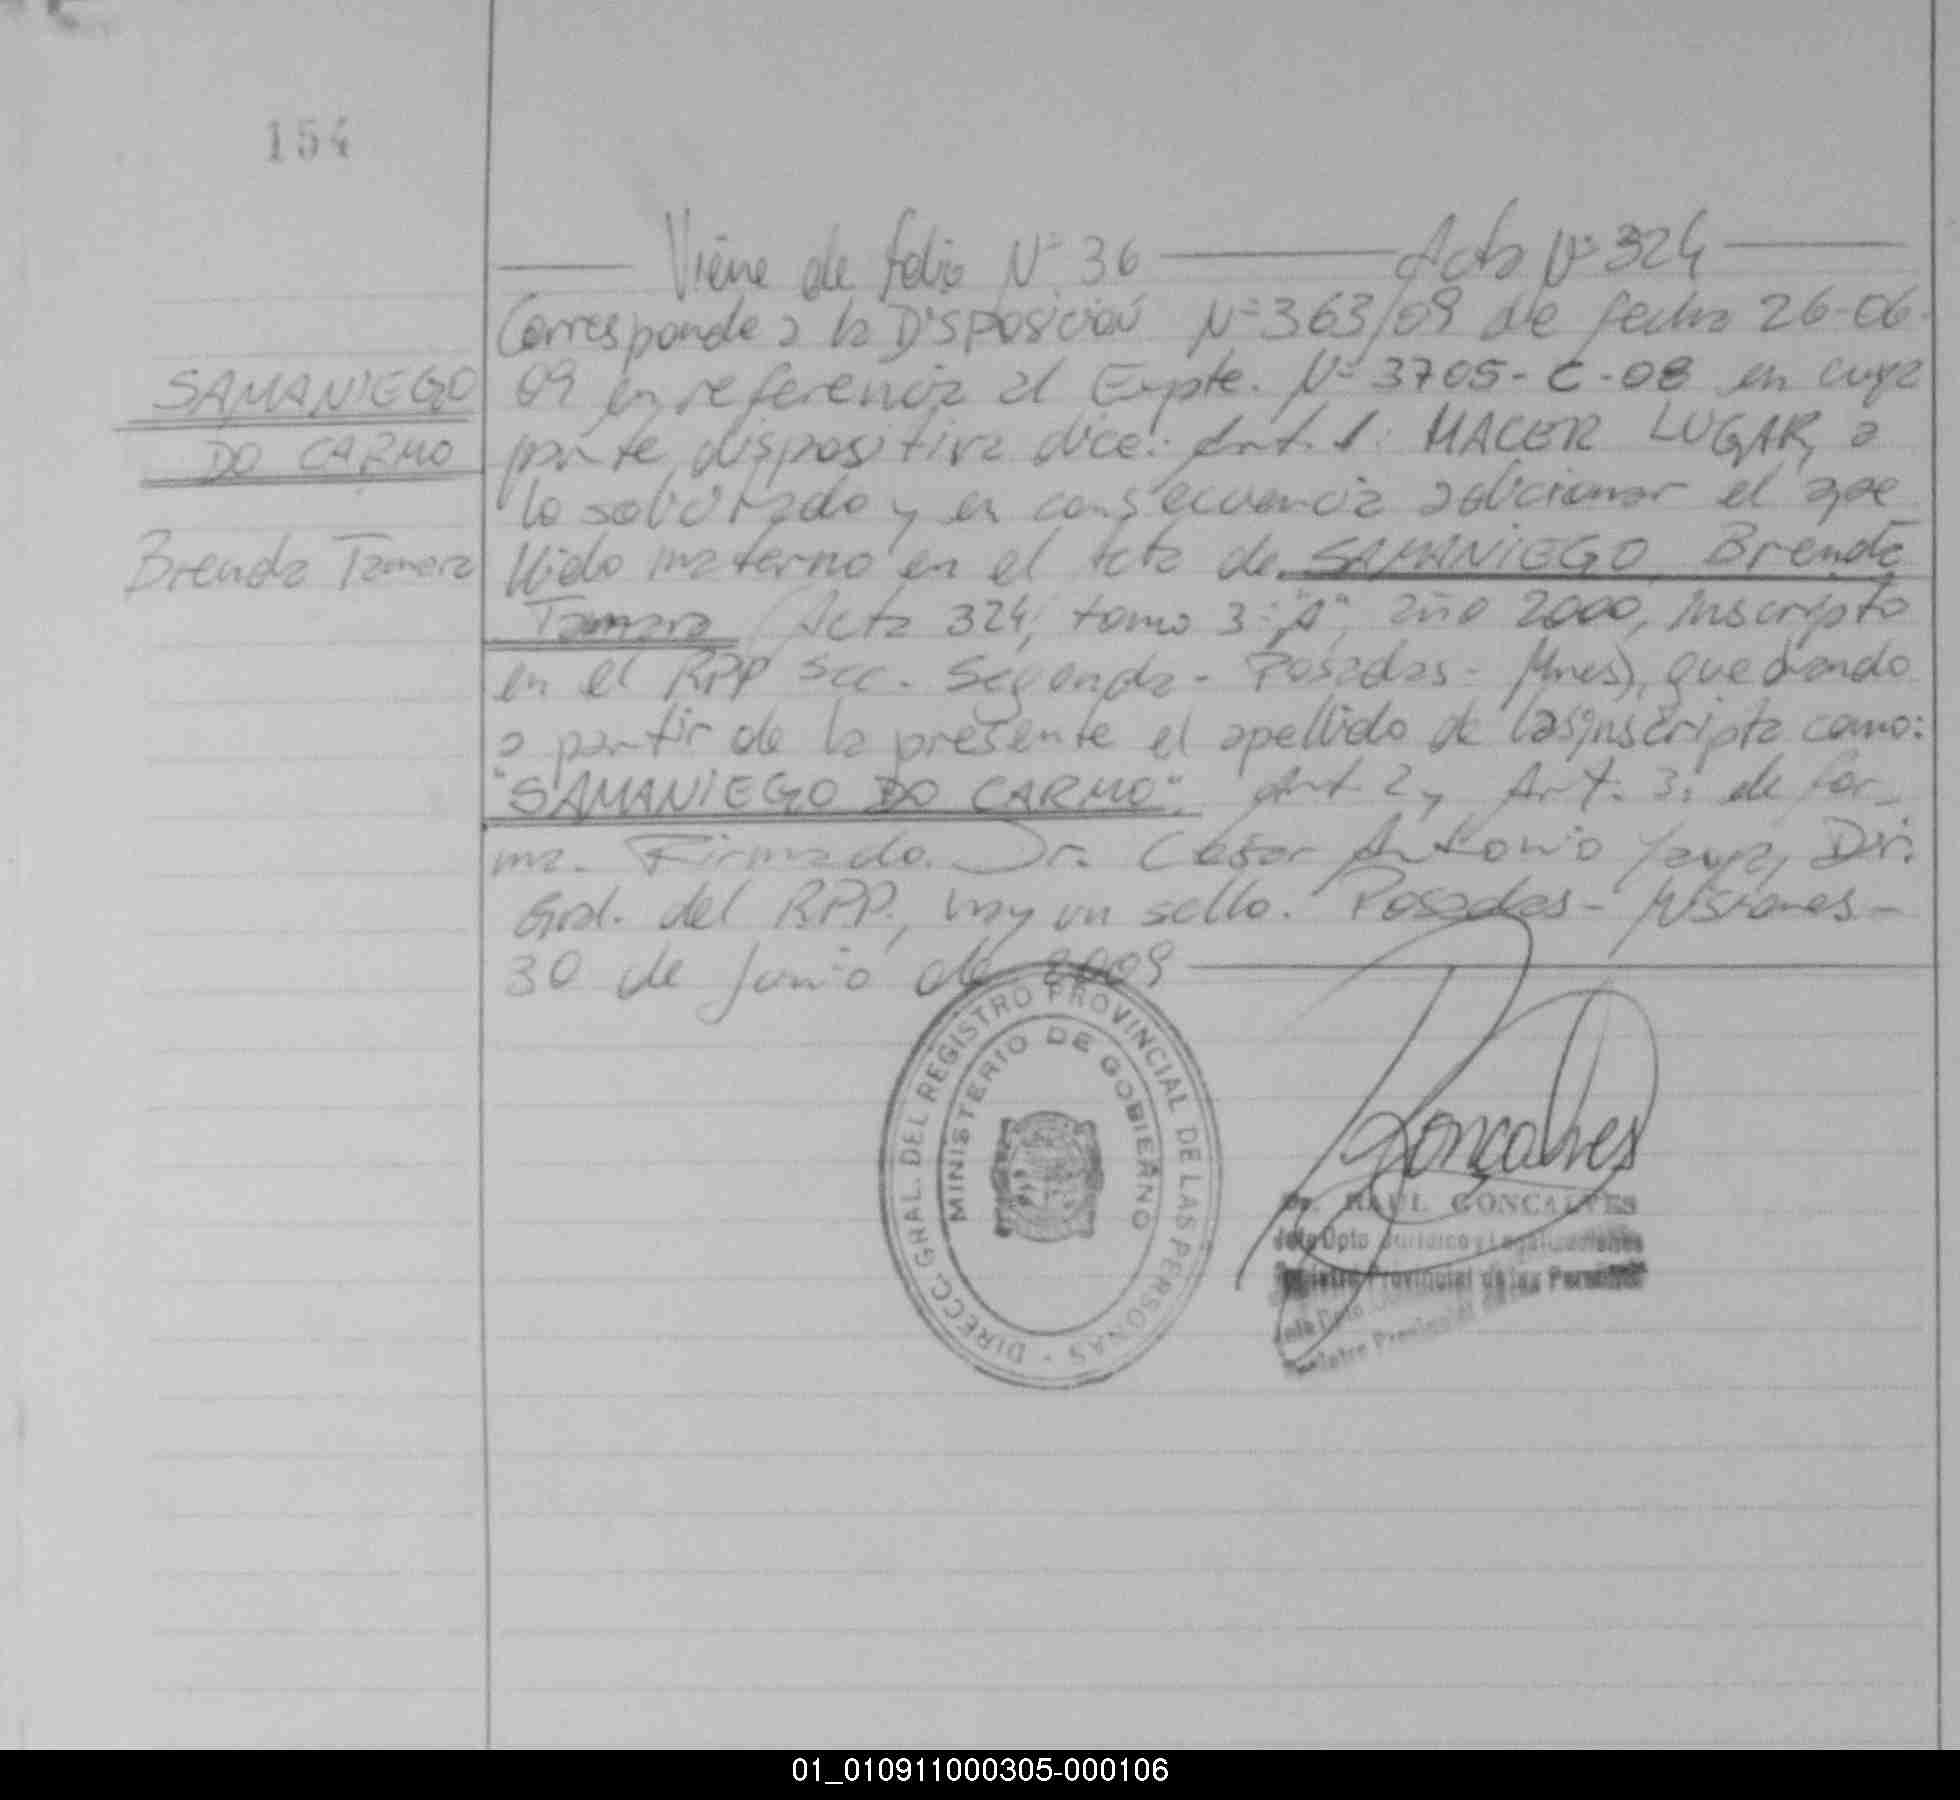 154
Viene de folio Nº 36 Acta Nº 324
Corresponde a la Disposición Nº 363/09 de fecha 26-06-
SAMANIEGO
DO CARMO
Brenda Tamara
09 en referencia al Expte. Nº 3705-C-08 en cuya
parte dispositiva dice: Art. 1: HACER LUGAR, a
lo solicitado y en consecuencia adicionar el ape
llido materno en el acta de SAMANIEGO, Brenda
Tamara (Acta 324, tomo 3º "A", año 2000, inscripto
en el RPP Sec. Segunda - Posadas - Mnes), quedando
a partir de la presente el apellido de la inscripta como:
"SAMANIEGO DO CARMO". Art. 2 y Art. 3: de for-
ma. Firmado. Dr. César Antonio Yaya, Dir.
Gral. del RPP., hay un sello. Posadas - Misiones -
30 de Junio de 2009
DIRECC. GRAL. DEL REGISTRO PROVINCIAL DE LAS PERSONAS -
MINISTERIO DE GOBIERNO
Goncalves
Dr. RAUL GONCALVES
Jefe Dpto. Jurídico y Legalizaciones
Registro Provincial de las Personas
Jefe Dpto
Registro Provincial
01_010911000305-000106